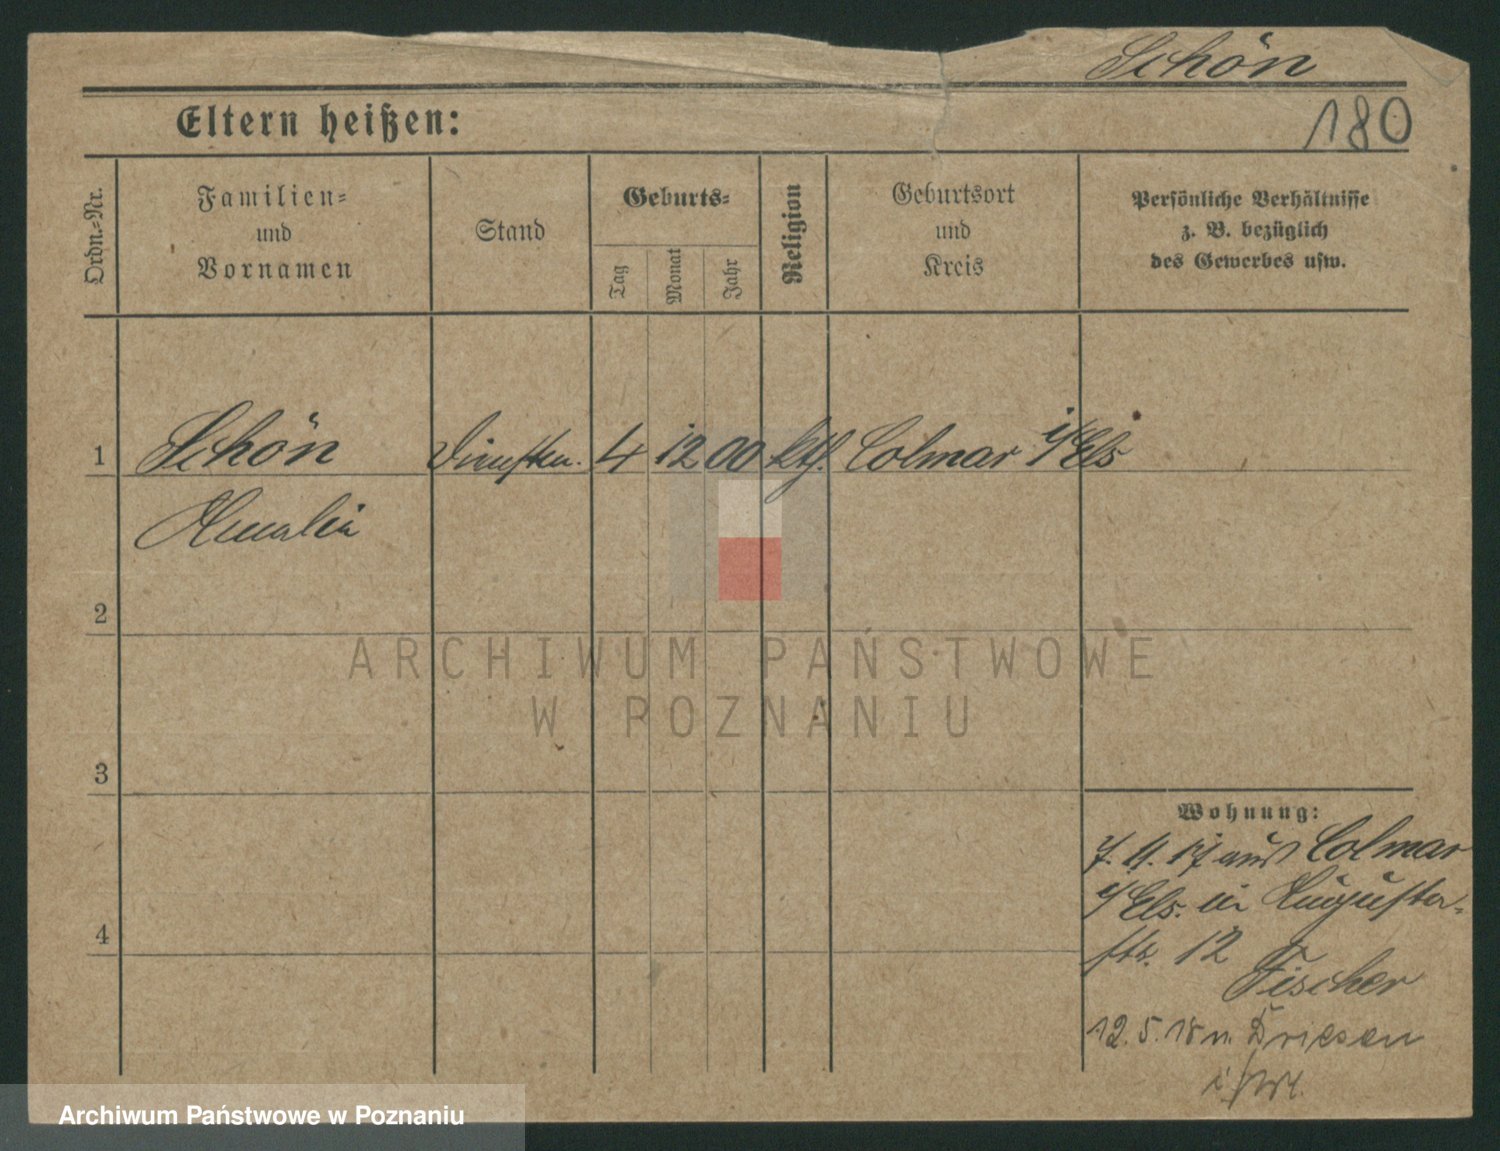 Schön
180
Eltern heißen:
Ordn.-Nr.
Familien-
und
Vornamen
Stand
Geburts-
Tag
Monat
Jahr
Religion
Geburtsort
und
Kreis
Persönliche Verhältnisse
z. B. bezüglich
des Gewerbes usw.
1 Schön 4 12 00 kth. Colmar i/Els
Amalia
2
ARCHIWUM PAŃSTWOWE
W POZNANIU
3
Wohnung:
7. 9. 17 aus Colmar
i/Els. in Augusta-
4
str. 12
Fischer
12. 5. 18 n. Driesen
Archiwum Państwowe w Poznaniu